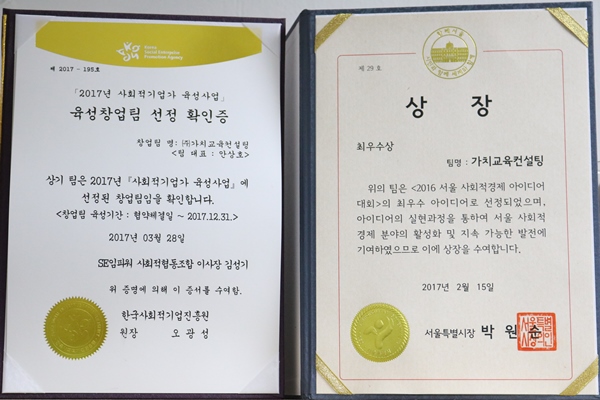 Korea
Social Enterprise
Promotion Agency
제 2017 - 195호
「2017년 사회적기업가 육성사업」
육성창업팀 선정 확인증
창업팀 명 : ㈜가치교육컨설팅
<팀 대표 : 안상호>
상기 팀은 2017년 『사회적기업가 육성사업』에
선정된 창업팀임을 확인합니다.
<창업팀 육성기간 : 협약체결일 ~ 2017.12.31.>
2017년 03월 28일
SE임파워 사회적협동조합 이사장 김성기
위 증명에 의해 이 증서를 수여함.
한국사회적기업진흥원
원장 오광성
제 29 호
상 장
최우수상
팀명 : 가치교육컨설팅
위의 팀은 <2016 서울 사회적경제 아이디어
대회>의 최우수 아이디어로 선정되었으며,
아이디어의 실현과정을 통하여 서울 사회적
경제 분야의 활성화 및 지속 가능한 발전에
기여하였으므로 이에 상장을 수여합니다.
2017년 2월 15일
서울특별시장 박원순